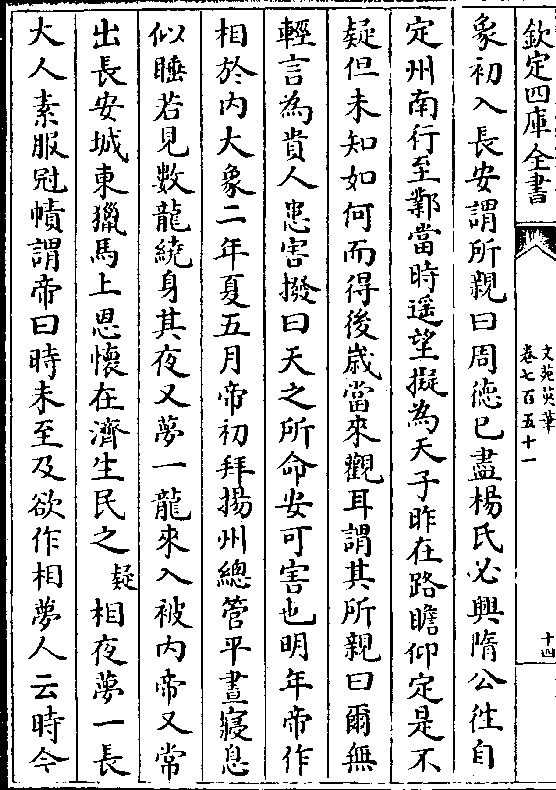 欽定四庫全書
文苑英華
卷七百五十一
十四
象初入長安謂所親曰周德已盡楊氏必興隋公往自
定州南行至鄴當時遥望擬為天子昨在路瞻仰定是不
疑但未知如何而得後歲當來觀耳謂其所親曰爾無
輕言為貴人患害撥曰天之所命安可害也明年帝作
相於內大象二年夏五月帝初拜揚州總管平晝寢息
似睡若見數龍繞身其夜又夢一龍來入被內帝又常
出長安城東獵馬上思懷在濟生民之疑相夜夢一長
大人素服冠幘謂帝曰時未至及欲作相夢人云時今